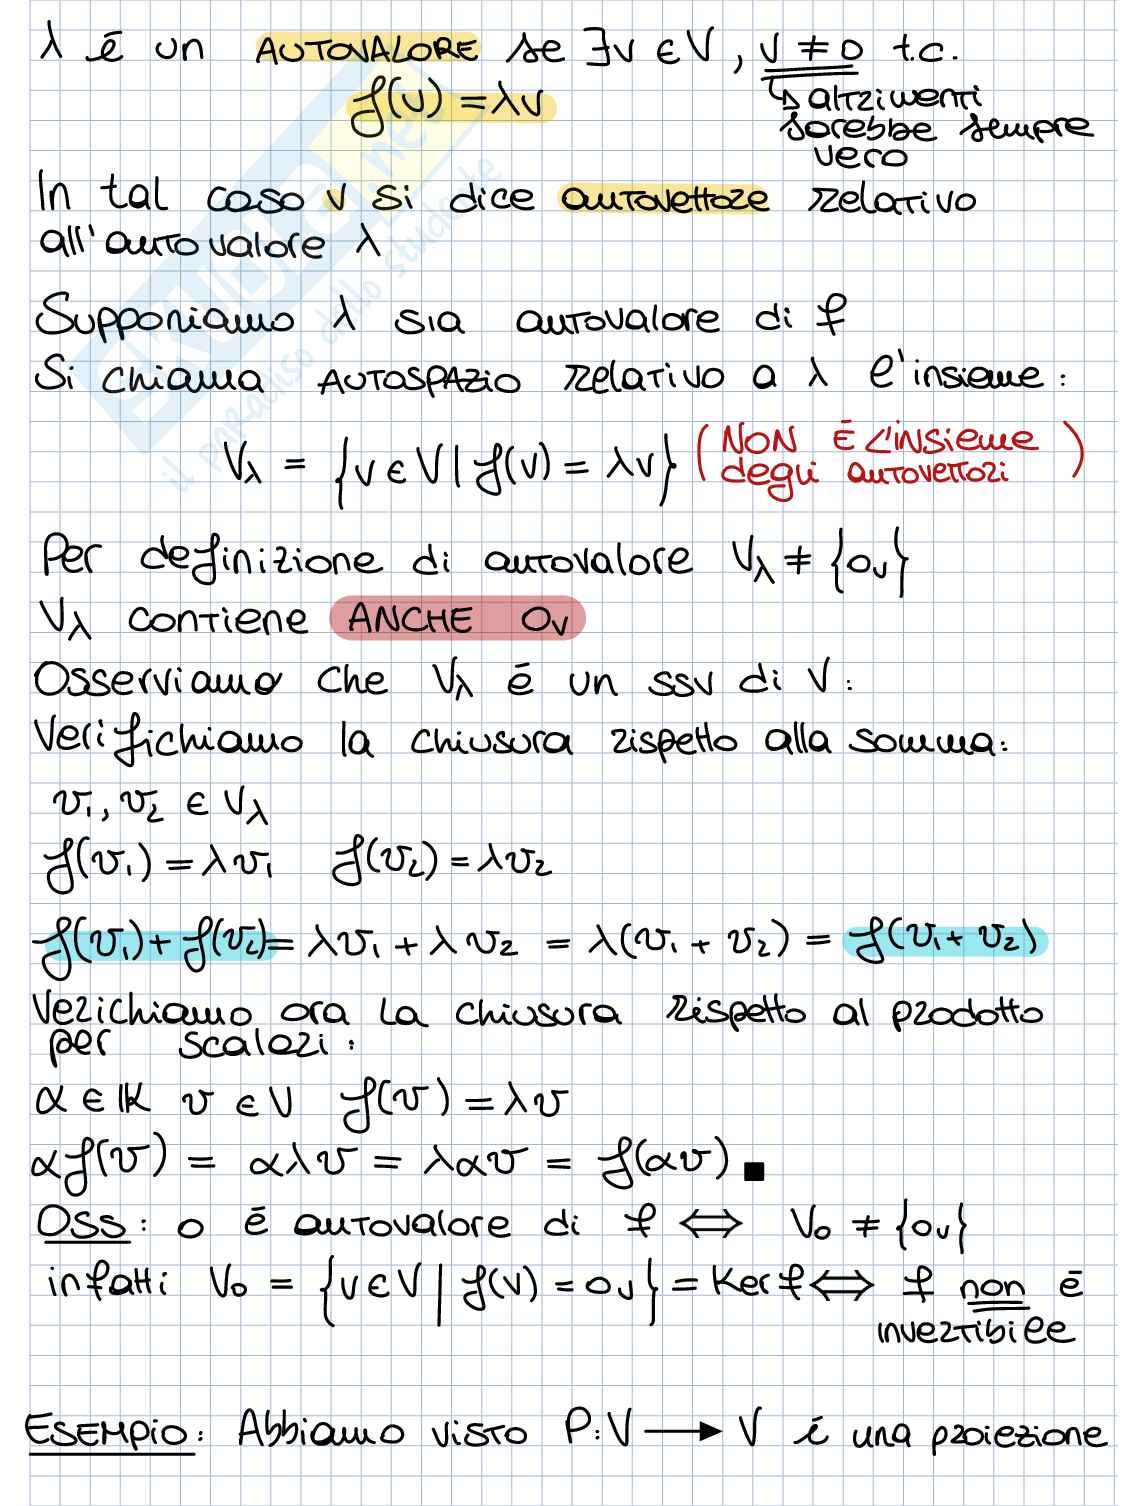 λ é un AUTOVALORE se ∃v ∈ V, v ≠ 0 t.c.
f(v) = λv
↳ altrimenti
sarebbe sempre
vero
In tal caso v si dice autovettore relativo
all'autovalore λ
Supponiamo λ sia autovalore di f
Si chiama AUTOSPAZIO relativo a λ l'insieme:
Vλ = {v ∈ V | f(v) = λv} (NON É L'insieme
degli autovettori)
Per definizione di autovalore Vλ ≠ {0v}
Vλ contiene ANCHE 0v
Osserviamo che Vλ é un ssv di V:
Verifichiamo la chiusura rispetto alla somma:
v₁, v₂ ∈ Vλ
f(v₁) = λv₁ f(v₂) = λv₂
f(v₁) + f(v₂) = λv₁ + λv₂ = λ(v₁ + v₂) = f(v₁ + v₂)
Verichiamo ora la chiusura rispetto al prodotto
per scalari:
α ∈ 𝕂 v ∈ V f(v) = λv
αf(v) = αλv = λαv = f(αv) ■
Oss: 0 é autovalore di f ⟺ V₀ ≠ {0v}
infatti V₀ = {v ∈ V | f(v) = 0v} = Ker f ⟺ f non é
invertibile
ESEMPIO: Abbiamo visto P: V ⟶ V é una proiezione
SKUOLA.net
il paradiso dello studente